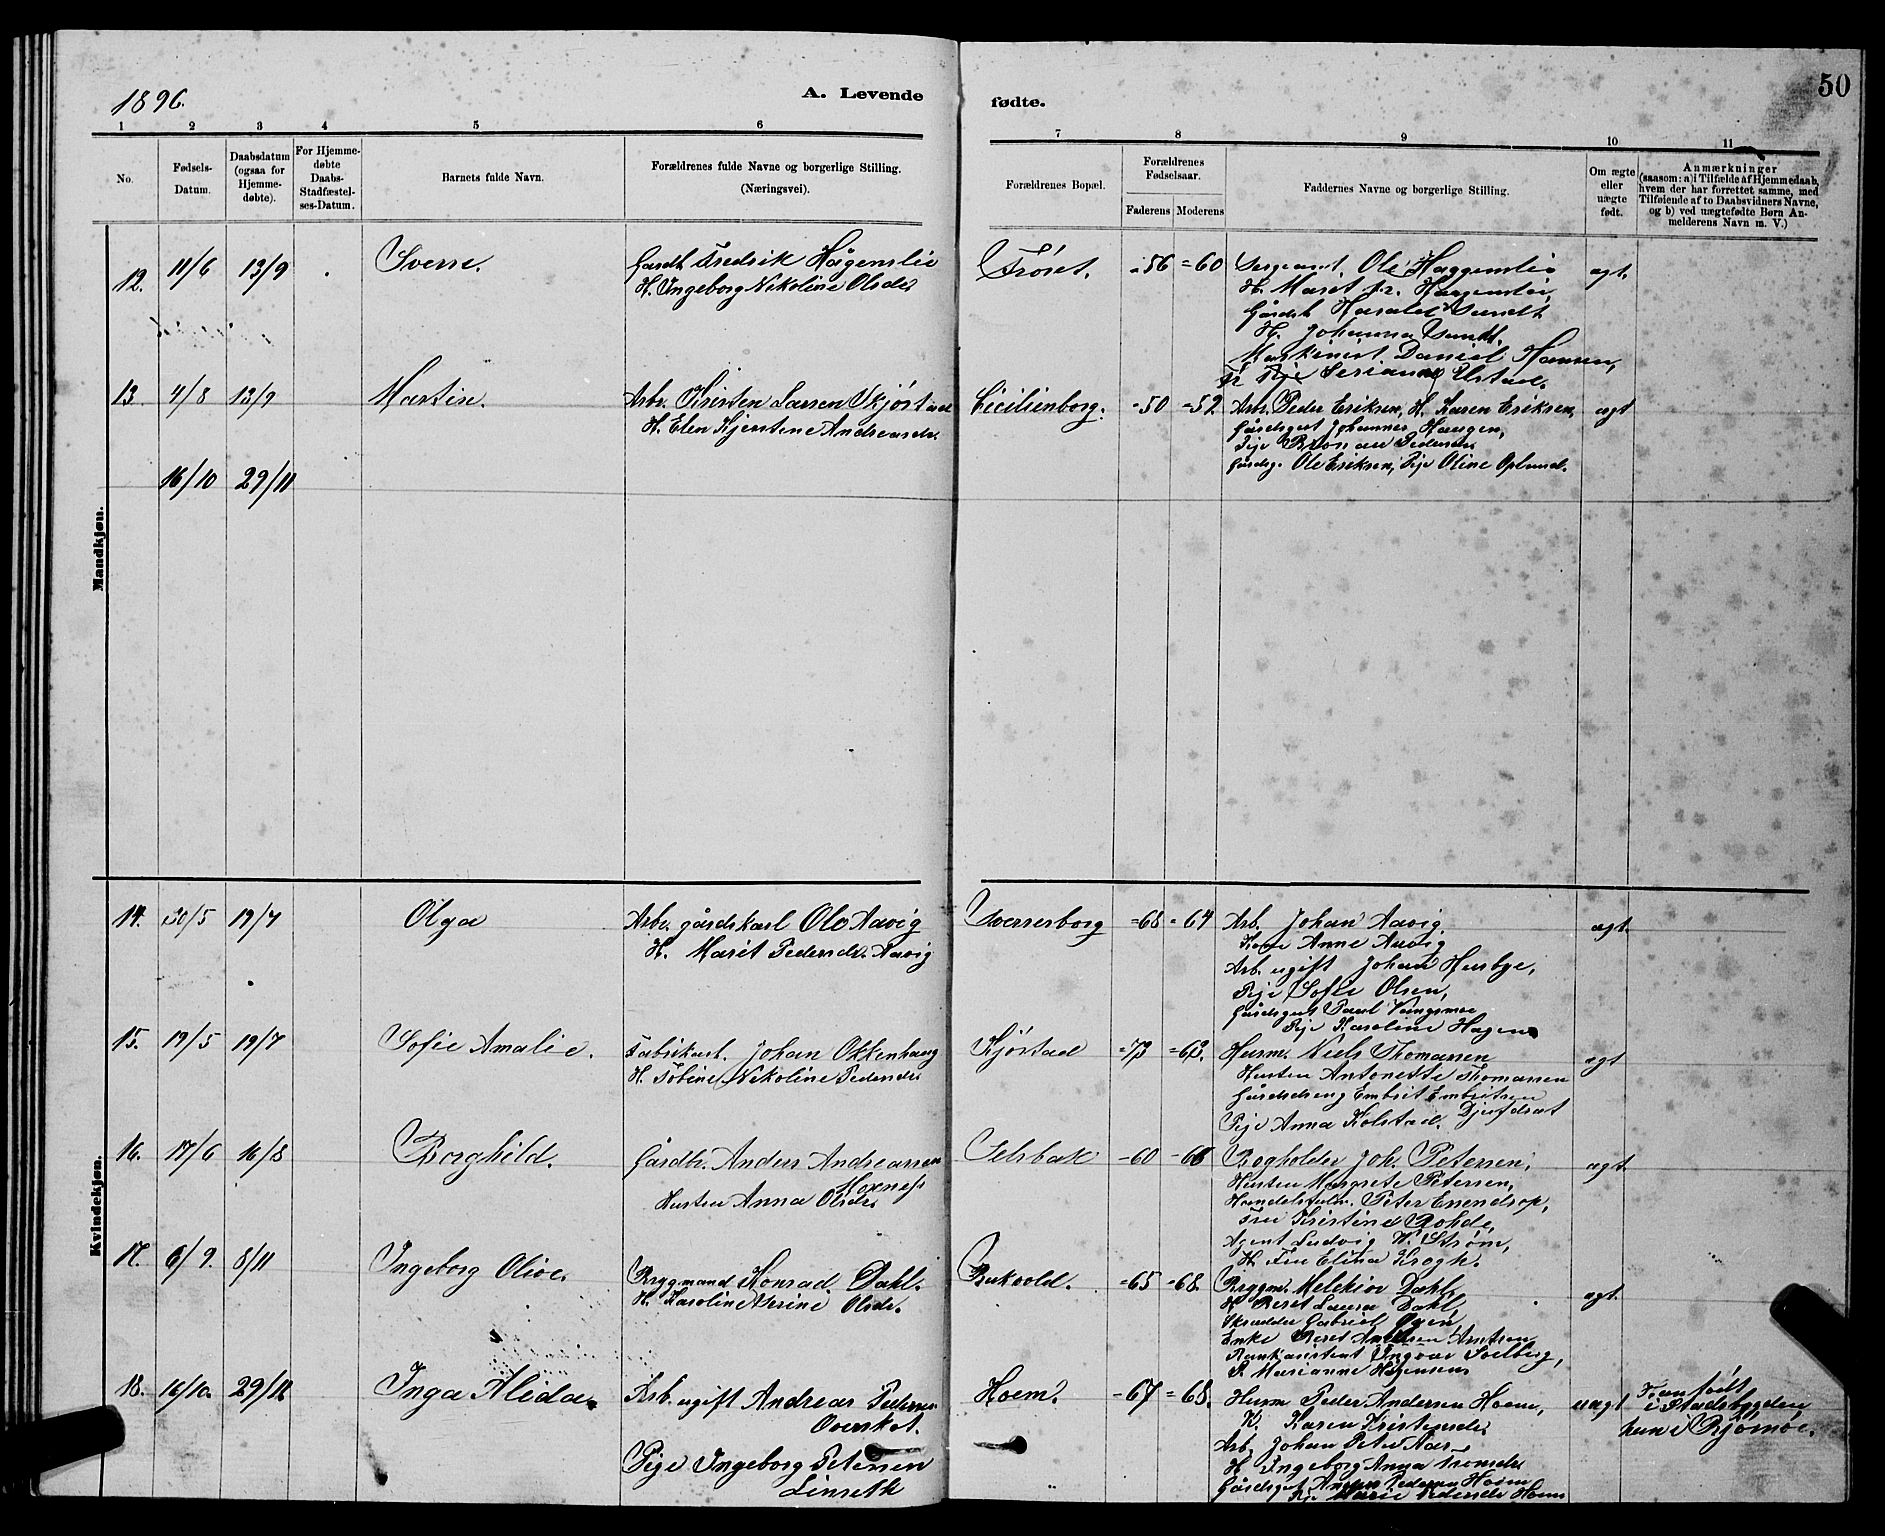 1896.
A. Levende
fødte.
50
1 2 3 4 5 6
7 8 9 10 11
No.
Fødsels-
Datum.
Daabsdatum
(ogsaa for
Hjemme-
døbte).
For Hjemme-
døbte
Daabs-
Stadfæstel-
ses-Datum.
Barnets fulde Navn.
Forældrenes fulde Navne og borgerlige Stilling.
(Næringsvei).
Forældrenes Bopæl.
Forældrenes
Fødselsaar.
Faderens Moderens
Faddernes Navne og borgerlige Stilling.
Om ægte
eller
uægte
født.
Anmærkninger
(saasom: a) i Tilfælde af Hjemmedaab,
hvem der har forrettet samme, med
Tilføiende af to Daabsvidners Navne,
og b) ved uægtefødte Børn An-
melderens Navn m. V.)
Mandkjøn.
12. 11/6 13/9 Sverre.
Gardb. Fredrik Hågenslie
H. Ingeborg Nikoline Olsdr
Frøset. =56 =60
Sergeant. Ole Haggenslie
H. Maret
Gårdb. Harald Sundt
H. Johanna Sundt.
Maskinist. Daniel Hansen,
Elstad.
ægt.
13. 4/8 13/9 Martin.
Arb. Kristen Larsen Skjøstad
H. Elen Kjerstine Andreasdr.
Cicilienborg. =50 =52
Arb. Peder Eriksen, H. Karen Eriksen,
Gårdsgut Johannes Haugen,
Pige
Gårdsg. Ole Eriksen, Pige Oline Oplund.
ægt
16/10 29/11
Kvindekjøn.
14. 30/5 19/7 Olga
Arb. gårdskarl Ole Aavig
H. Marit Pedersdr. Aavig
Sverresborg =68 =64
Arb. Johan Aavig
Kone Anne Aavig
Arb. ugift Johan Husbye,
Pige Sofie Olsen,
Gårdsgut Paul Vangsmoe
Pige Karoline Hagen
ægt.
15. 19/5 19/7 Sofie Amalie.
Fabrikarb. Johan Okkenhaug
H. Tobine Nikoline Pedersdr
Kjøstad =73 =63.
Husm. Niels Thomassen
Hustru Antonette Thomassen
Gårdsdreng Embret Embretsen
Djupdræt
Pige Anna Kolstad.
ægt
16. 17/6 16/8 Borghild.
Gårdbr. Anders Andreassen
Moxness
Hustru Anna Olsdr
Selsbak =60 =66
Bogholder Joh. Petersen,
Hustru Margrete Petersen,
Handelsfuldm. Peter Enendrop,
Fru Kristine Rohde,
Agent Ludvig W. Strøm,
H. Fru Elina Krogh.
ægt
17. 6/9. 8/11 Ingeborg Olive.
Bryggmand Konrad Dahl.
H. Karoline Serine Olsdr.
Rukvold. =65 =68.
Bryggm. Melekior Dahl,
H. Beret Laura Dahl,
Skrædder Gabriel Ysen,
Enke Beret Arntsen
Bankassistent Ingvar Solberg,
P. Marianne Høgensen
ægt.
18. 16/10. 29/11 Inga Alida.
Arb. ugift Andreas Pedersen
Overskot.
Pige Ingeborg Petersen
Linseth
Hoem. =67 =68.
Husm Peder Andersen Hoem,
K. Karen Kristensdr
Arb. Johan Peter Aas
H. Ingeborg Anna Aronsdr
Gårdsgut Anders Pedersen Hoem
Pige Marie Pedersdr Hoem
uægt
Han født
i Stadsbygden
hun i Bjømoe.